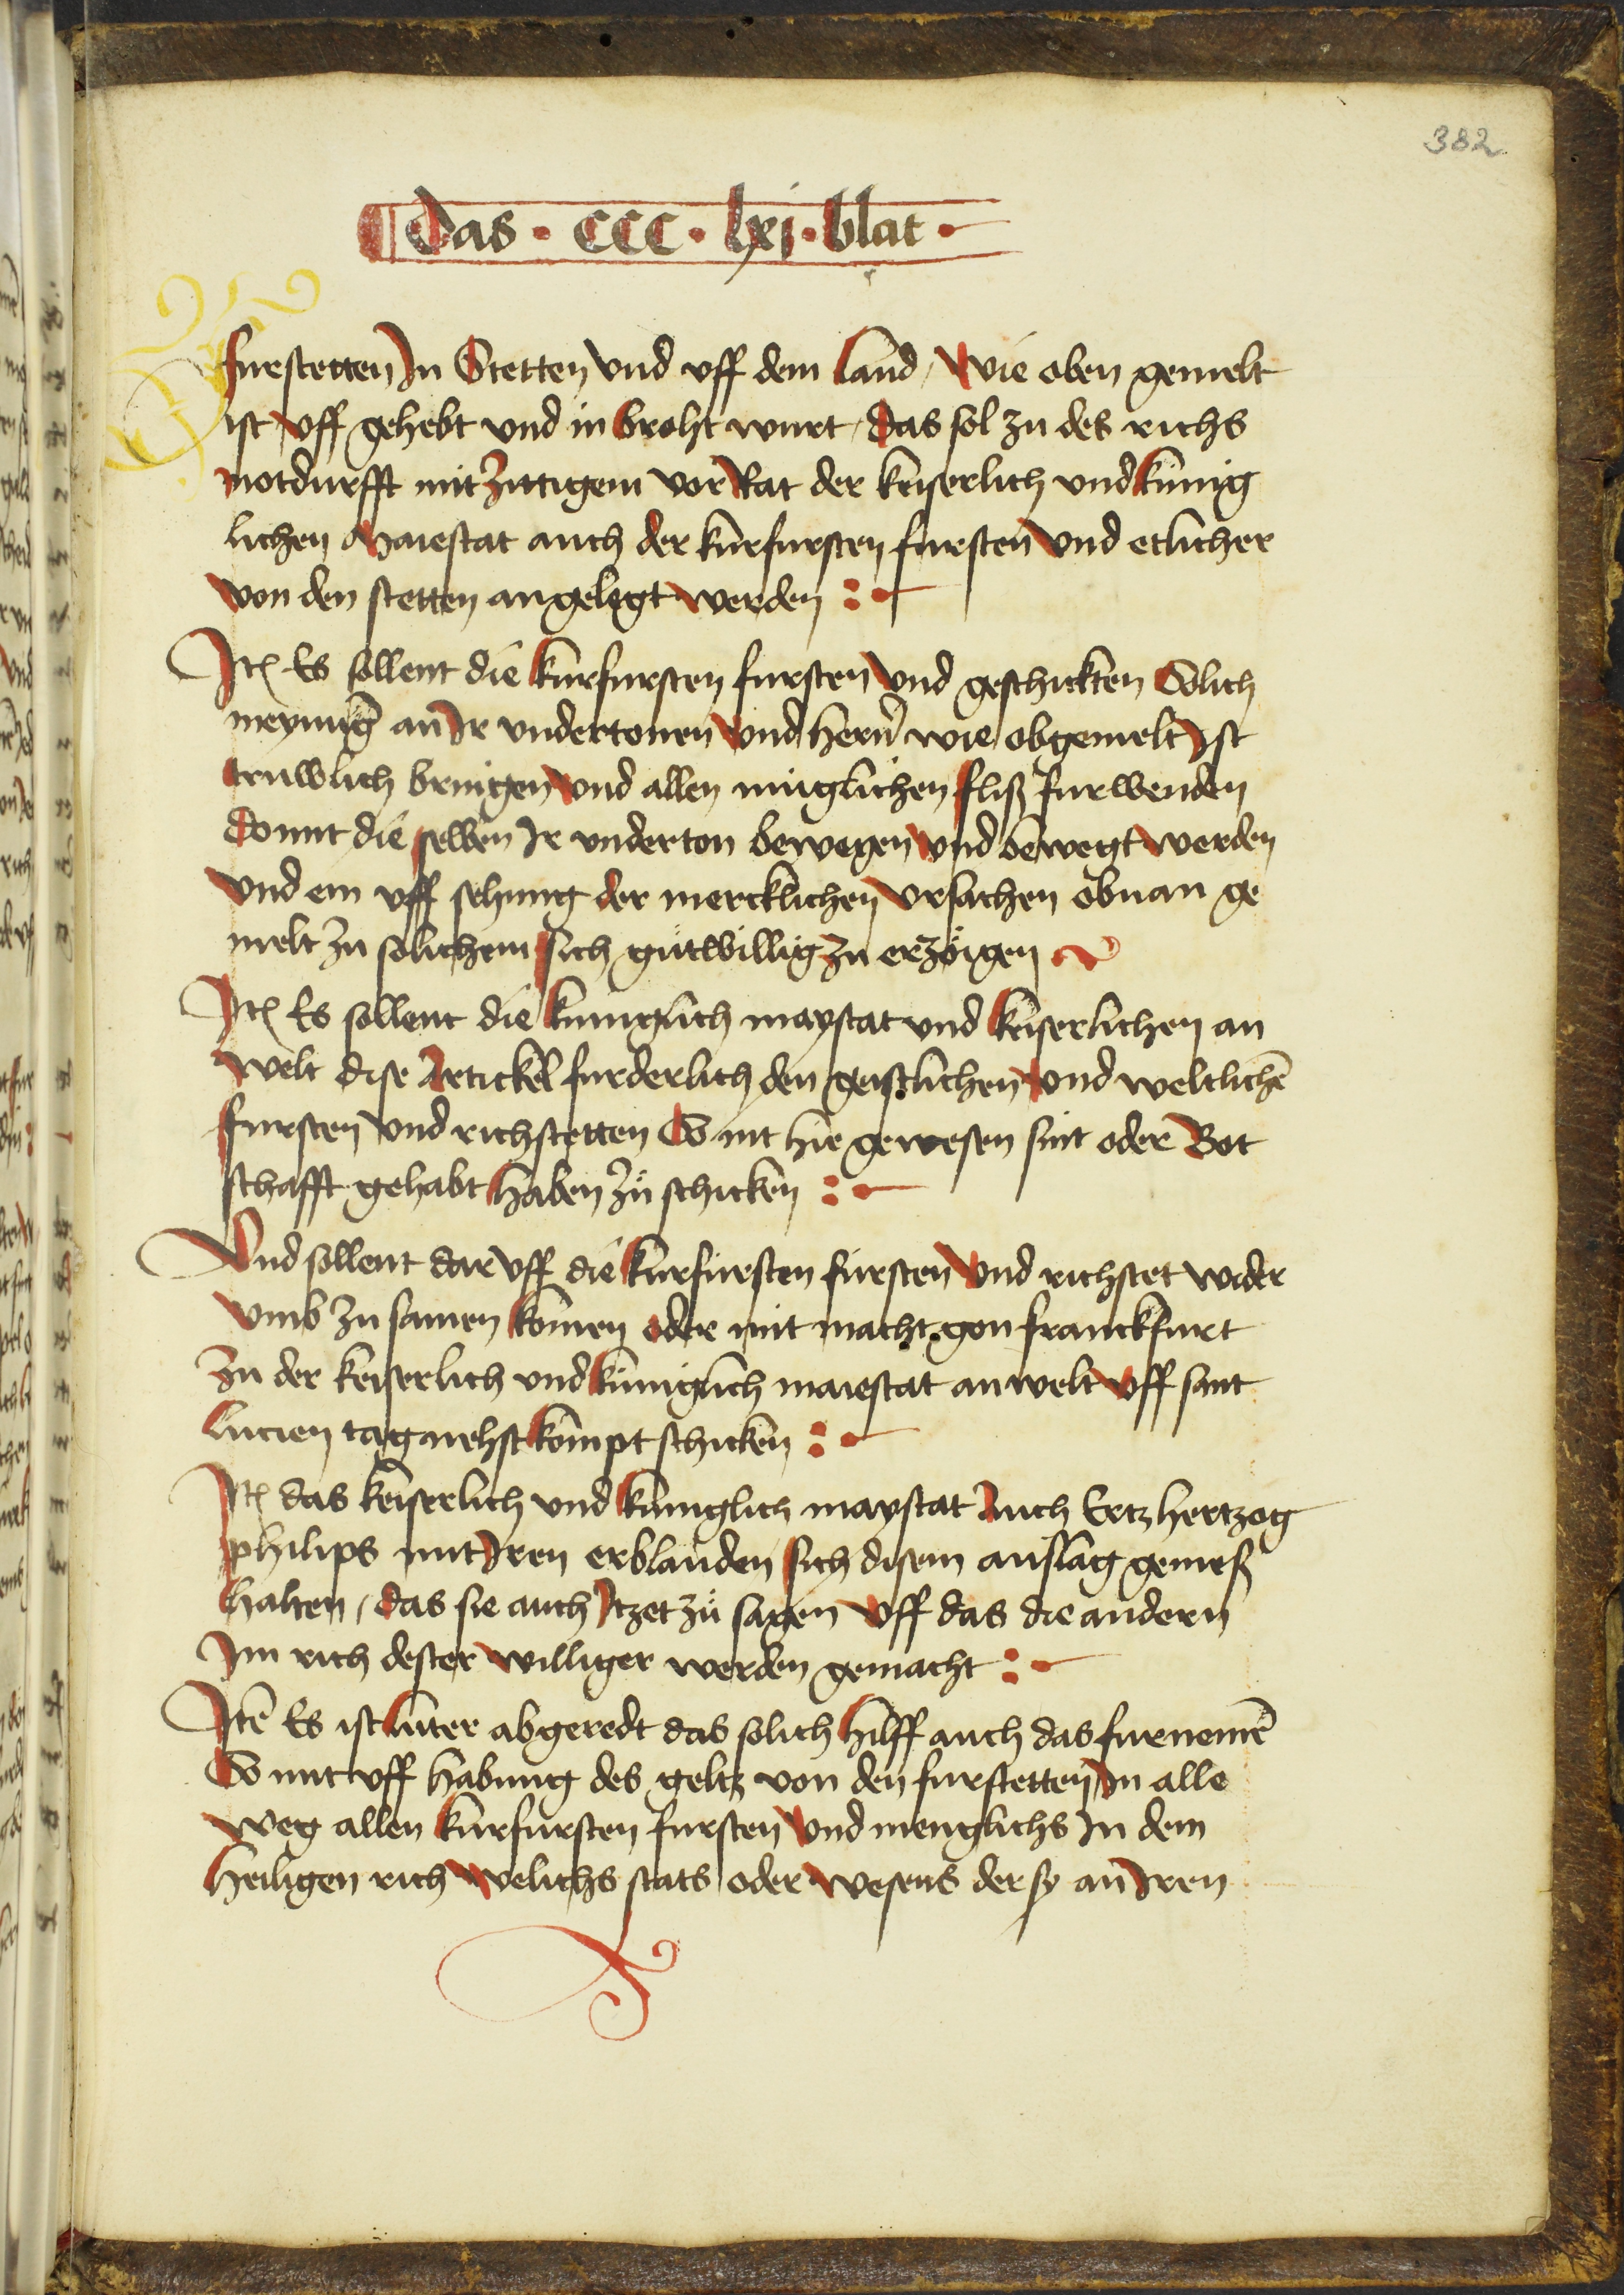 382
Das · CCC · lxj · blat ·
furstetten In Stetten vnd vff dem land / wie oben gemelt
ist vff gehebt vnd in broht wurt / das sol zu des richs
notdurfft mit zittigem vor Rat der keiserlich vnd künig
lichen Maiestat auch der kurfursten fursten vnd etlicher
von den stetten angelegt werden :
Itē Es sollent die kurfursten fursten vnd geschickten Solich
meynuĝ an Ir vndertonen vnd hern̄ wie obgemelt Ist
truwlich bringen vnd allen müglichen fliß furwenden
domit die selben Ir vnderton bewegen vnd bewegt werden
vnd ein vff sehung der mercklichen vrsachen obnan ge
melt zu solichem sich gůtwillig zu erzöigen
Itē Es sollent die kuniglich maystat vnd keiserlichen an
welt dise Artickel furderlich den geistlichen vnd weltlichē
fursten vnd richstetten So nit hie gewesen sint oder Bot
schafft gehabt haben zů schicken :
Vnd sollent dar vff die kurfürsten fürsten vnd richstet wider
vmb zu samen komen oder mit macht gon franckfurt
zu der keiserlich vnd küniglich maiestat anwelt vff sant
lucien tag nehst kompt schicken :
Itē das keiserlich vnd kuniglich maystat Auch Ertzhertzog
philips mit Iren erblanden sich disem anslag gemeß
halten / das sie auch Itzet zů sagen vff das die andern
Im rich dester williger werden gemacht :
Itē Es ist luter abgeredt das solich hilff auch das furnemē
So mit vff habung des geltz von den furstetten In alle
weg allen kurfursten fursten vnd menglichs In dem
heiligen rich welichs stats oder wesens der sy an Iren